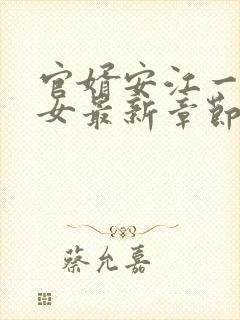 官婿安江一
女最新章節
蔡允嘉